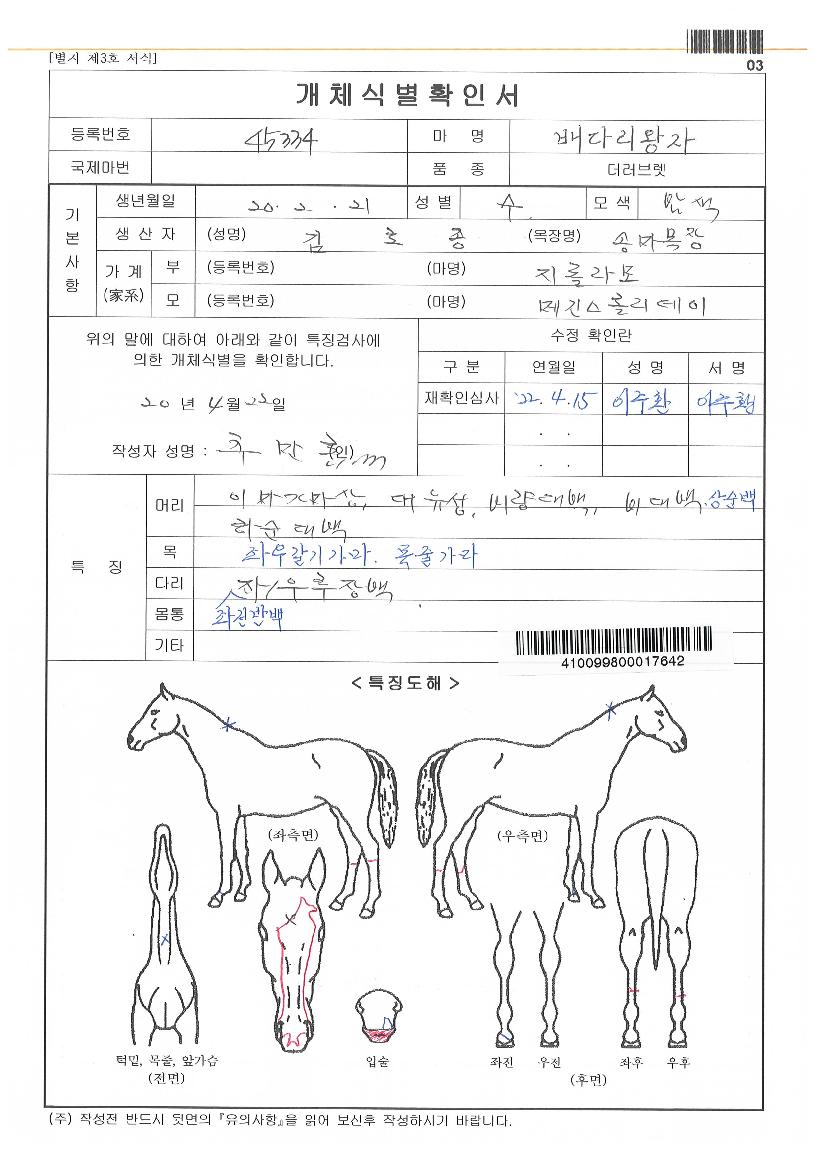 [별시 제3호 서식]
03
개체식별확인서
등록번호 45334 마 명 배다리왕자
국제마번 품 종 더러브렛
기본사항
생년월일 20. 2. 21 성별 수 모색 밤색
생산자 (성명) 김호종 (목장명) 송마목장
가계(家系) 부 (등록번호) (마명) 지롤라모
모 (등록번호) (마명) 메긴스홀리데이
위의 말에 대하여 아래와 같이 특징검사에
의한 개체식별을 확인합니다.
20년 4월 22일
작성자 성명 : (인)
수정 확인란
구분 연월일 성명 서명
재확인심사 '22. 4. 15 이주환 이주환
. .
. .
특 징
머리 대유성, 비량대백, 비대백, 상순백
하순대백
목 좌우갈기가마. 목줄가마
다리 좌/우후장백
몸통 좌전반백
기타
410099800017642
< 특징도해 >
(좌측면) (우측면)
턱밑, 목줄, 앞가슴 입술 좌전 우전 좌후 우후
(전면) (후면)
(주) 작성전 반드시 뒷면의 『유의사항』을 읽어 보신후 작성하시기 바랍니다.